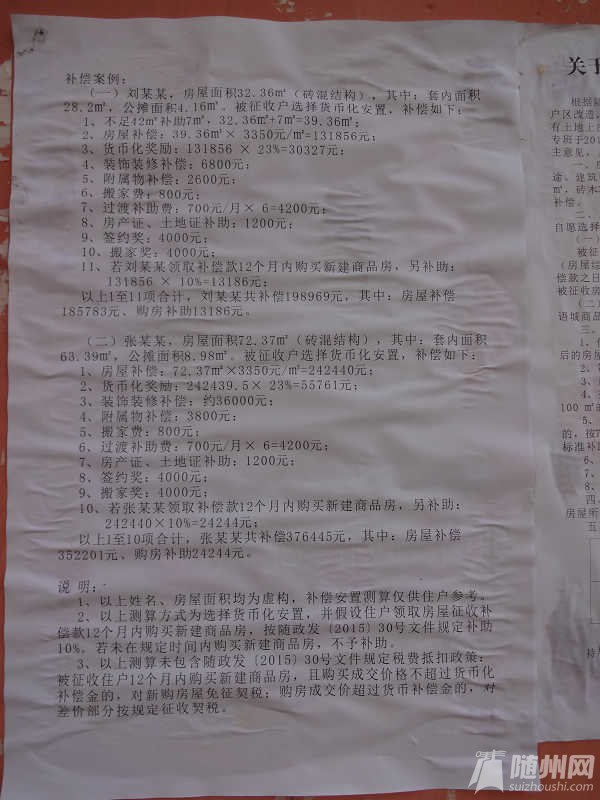 补偿案例：
（一）刘某某，房屋面积32.36㎡（砖混结构），其中：套内面积
28.2㎡，公摊面积4.16㎡。被征收户选择货币化安置，补偿如下：
1、不足42㎡补助7㎡，32.36㎡+7㎡=39.36㎡；
2、房屋补偿：39.36㎡× 3350元/㎡=131856元；
3、货币化奖励：131856 × 23%=30327元；
4、装饰装修补偿：6800元；
5、附属物补偿：2600元；
6、搬家费：800元；
7、过渡补助费：700元/月× 6=4200元；
8、房产证、土地证补助：1200元；
9、签约奖：4000元；
10、搬家奖：4000元；
11、若刘某某领取补偿款12个月内购买新建商品房，另补助：
131856 × 10%=13186元；
以上1至11项合计，刘某某共补偿198969元，其中：房屋补偿
185783元、购房补助13186元。
（二）张某某，房屋面积72.37㎡（砖混结构），其中：套内面积
63.39㎡，公摊面积8.98㎡。被征收户选择货币化安置，补偿如下：
1、房屋补偿：72.37㎡×3350元/㎡=242440元；
2、货币化奖励：242439.5× 23%=55761元；
3、装饰装修补偿：约36000元；
4、附属物补偿：3800元；
5、搬家费：800元；
6、过渡补助费：700元/月× 6=4200元；
7、房产证、土地证补助：1200元；
8、签约奖：4000元；
9、搬家奖：4000元；
10、若张某某领取补偿款12个月内购买新建商品房，另补助：
242440×10%=24244元；
以上1至10项合计，张某某共补偿376445元，其中：房屋补偿
352201元、购房补助24244元。
说 明：
1、以上姓名、房屋面积均为虚构，补偿安置测算仅供住户参考。
2、以上测算方式为选择货币化安置，并假设住户领取房屋征收补
偿款12个月内购买新建商品房，按随政发〔2015〕30号文件规定补助
10%。若未在规定时间内购买新建商品房，不予补助。
3、以上测算未包含随政发〔2015〕30号文件规定税费抵扣政策：
被征收住户12个月内购买新建商品房，且购买成交价格不超过货币化
补偿金的，对新购房屋免征契税；购房成交价超过货币补偿金的，对
差价部分按规定征收契税。
关于
根据
户区改造，
有土地上
专班于201
主意见，
一、
途、建筑
㎡，砖木
补偿。
二、
自愿选择
（一）
被征
（房屋结
偿款之日
被征收房
（二）
语城商品
后的房屋
100 ㎡的
的，按7
标准补助
6、
7、
8、
四、
房屋所
五
随州网
suizhoushi.com